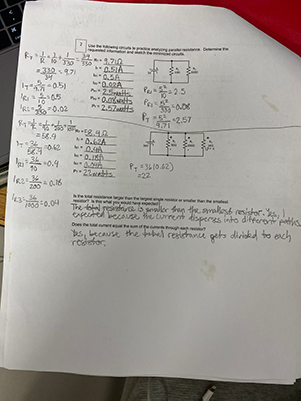 2
Use the following circuits to practice analyzing parallel resistance. Determine the
requested information and sketch the minimized circuits.
RT = 1/R = 1/10 + 1/330 = 34/330
= 330/34 = 9.71
RT = 9.71Ω
IT = 0.51A
0.5A
0.02A
2.5 watts
0.08 watts
PT = 2.57 watts
IT = 5/9.71 = 0.51
IR1 = 5/10 = 0.5
= 5/330 = 0.02
PR1 = 5²/10 = 2.5
PR2 = 5²/330 = 0.08
PT = 5²/9.71 = 2.57
= 58.4
RT = 58.4Ω
0.62A
0.4A
0.18A
0.04A
22 watts
IT = 36/58.4 = 0.62
= 36/90 = 0.4
IR2 = 36/200 = 0.18
IR3 = 36/1000 = 0.04
PT = 36(0.62)
= 22
Is the total resistance larger than the largest single resistor or smaller than the smallest
resistor? Is this what you would have expected?
The total resistance is smaller than the smallest resistor. Yes, I
expected because the current disperses into different paths.
Does the total current equal the sum of the currents through each resistor?
Yes, because the total resistance gets divided to each
resistor.